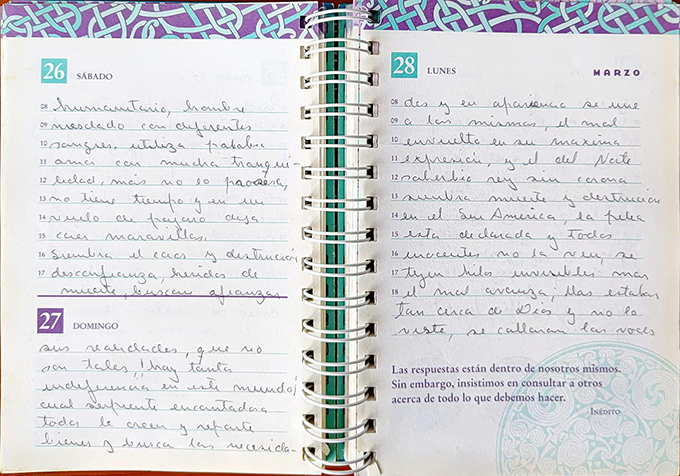 26 SÁBADO
08 humanitario, hombre
09 mesclado con diferentes
10 sangres, utiliza palabra
11 amar con mucha tranqui-
12 lidad, más no lo profesa,
13 no tiene tiempo y en un
14 vuelo de pajaro deja
15 caer maravillas.
16 Siembra el caos y destrucción
17 desconfianza, heridas de
muerte, buscan afianzar
27 DOMINGO
sus realidades, que no
son tales, ! hay tanta
indeferencia en este mundo!
cual serpiente encantadora
todos la creen y reparte
bienes y busca las necesida-
28 LUNES
MARZO
08 des y en apariencia se une
09 a las mismas, el mal
10 envuelto en su maxima
11 expresión, y el del Norte
12 soberbio rey sin corona
13 siembra muerte y destrucción
14 en el Sur America, la pelea
15 esta declarada y todos
16 inocentes no la ven, se
17 tejen hilos invisibles mas
18 el mal avanza, Uds estaban
tan cerca de Dios y no lo
viste, se callaran las voces
Las respuestas están dentro de nosotros mismos.
Sin embargo, insistimos en consultar a otros
acerca de todo lo que debemos hacer.
INÉDITO